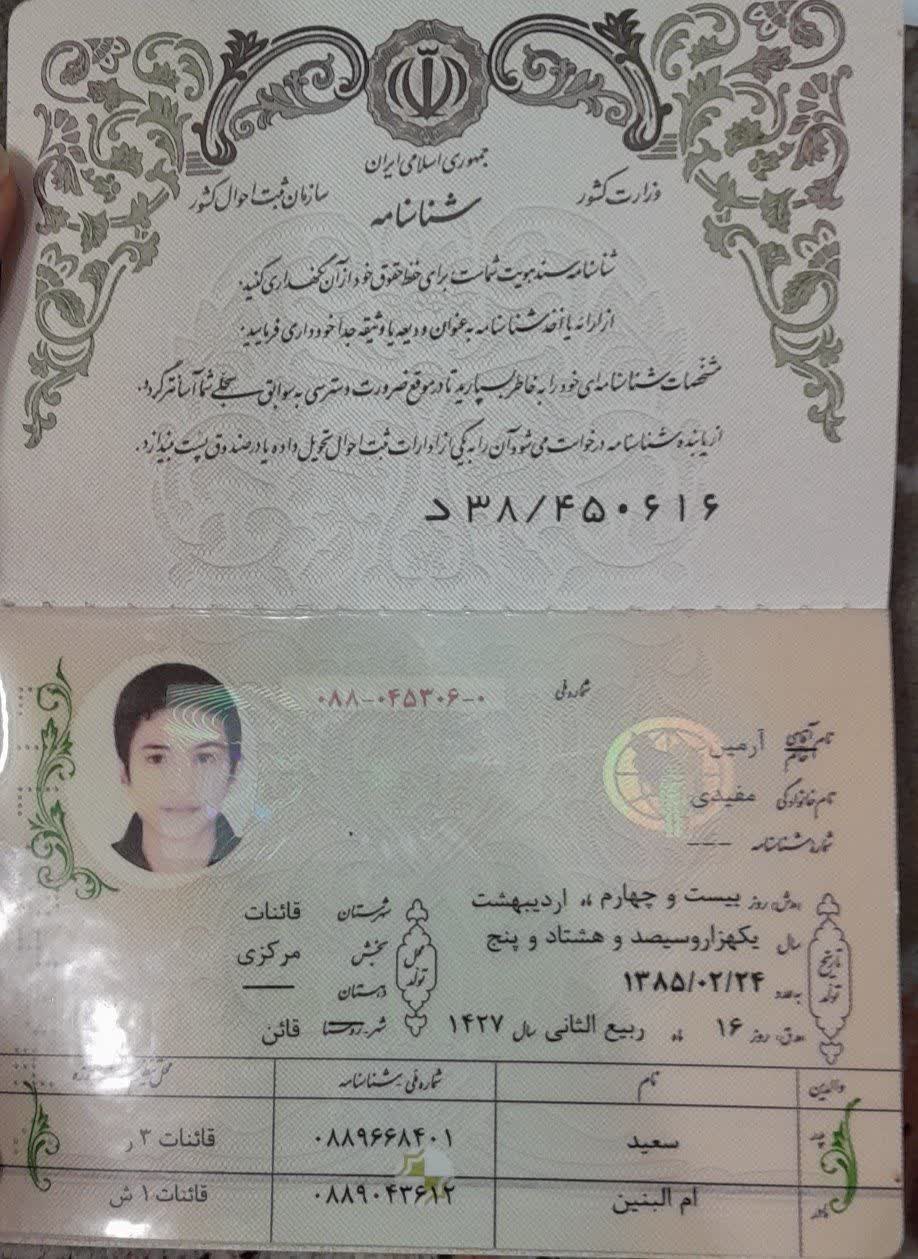 جمهوری اسلامی ایران
وزارت کشور
سازمان ثبت احوال کشور
شناسنامه
شناسنامه سند هویت شماست برای حفظ حقوق خود از آن نگهداری کنید.
از ارائه یا اخذ شناسنامه به عنوان ودیعه یا وثیقه جدا خودداری فرمایید.
مشخصات شناسنامه‌ای خود را به خاطر بسپارید تا در موقع ضرورت دسترسی به سوابق سجلی شما آسانتر گردد.
از یابنده شناسنامه درخواست می شود آن را به یکی از ادارات ثبت احوال تحویل داده یا در صندوق پست بیندازد.
د ۳۸/۴۵۰۶۱۶
شماره ملی ۰۸۸-۰۴۵۳۰۶-۰
نام آقای خانم آرمین
نام خانوادگی مفیدی
شماره شناسنامه ---
تاریخ تولد
روز بیست و چهارم ماه اردیبهشت
سال یکهزاروسیصد و هشتاد و پنج
به عدد ۱۳۸۵/۰۲/۲۴
روز ۱۶ ماه ربیع الثانی سال ۱۴۲۷
محل تولد
شهرستان قائنات
بخش مرکزی
دهستان —
شهر روستا قائن
والدین نام شماره ملی شناسنامه
پدر سعید ۰۸۸۹۶۶۸۴۰۱ قائنات ۳ ر
مادر ام البنین ۰۸۸۹۰۴۳۶۱۲ قائنات ۱ ش